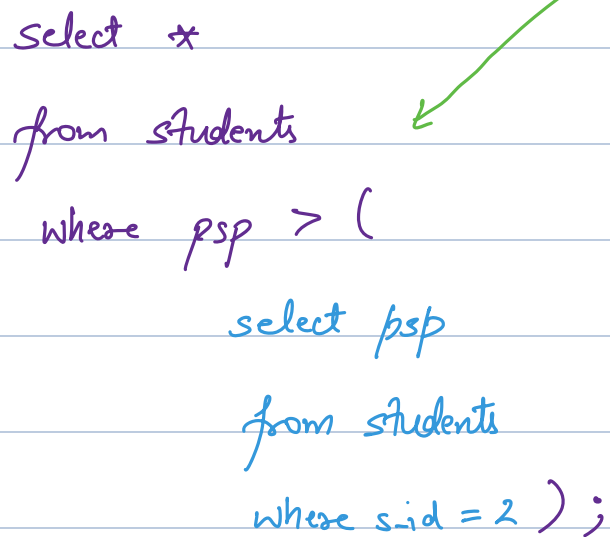 select *
from students
where psp > (
select psp
from students
where s_id = 2 );